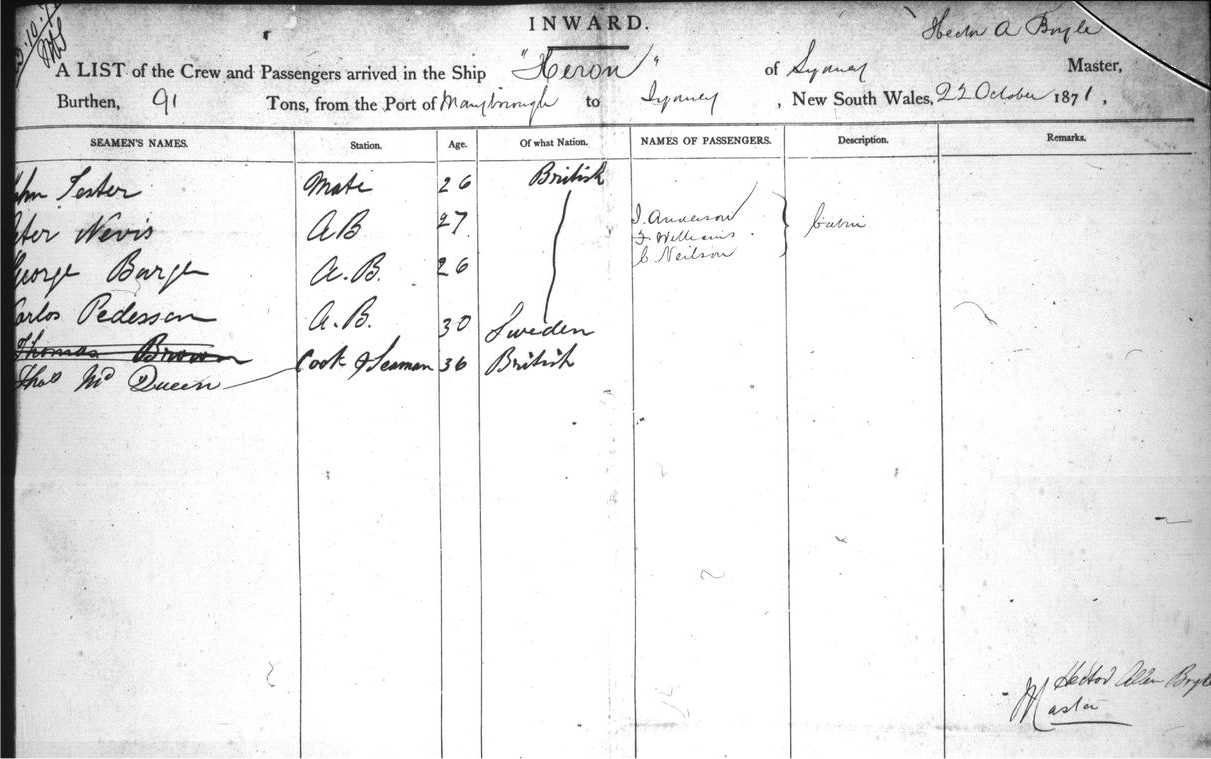 INWARD.
Hector A Boyle
A LIST of the Crew and Passengers arrived in the Ship "Heron" of Sydney Master,
Burthen, 91 Tons, from the Port of Maryborough to Sydney, New South Wales, 22 October 1871,
SEAMEN'S NAMES. Station. Age. Of what Nation. NAMES OF PASSENGERS. Description. Remarks.
ohn Foster Mate 26 British
eter Nevis A B 27 J. Anderson Cabin
F Williams
George Barge A.B. 26 C Neilson
arlos Pedersson A.B. 30 Sweden
Thomas Brown Cook & Seaman 36 British
Thos Mc Queen
Hector Allan Boyle
Master